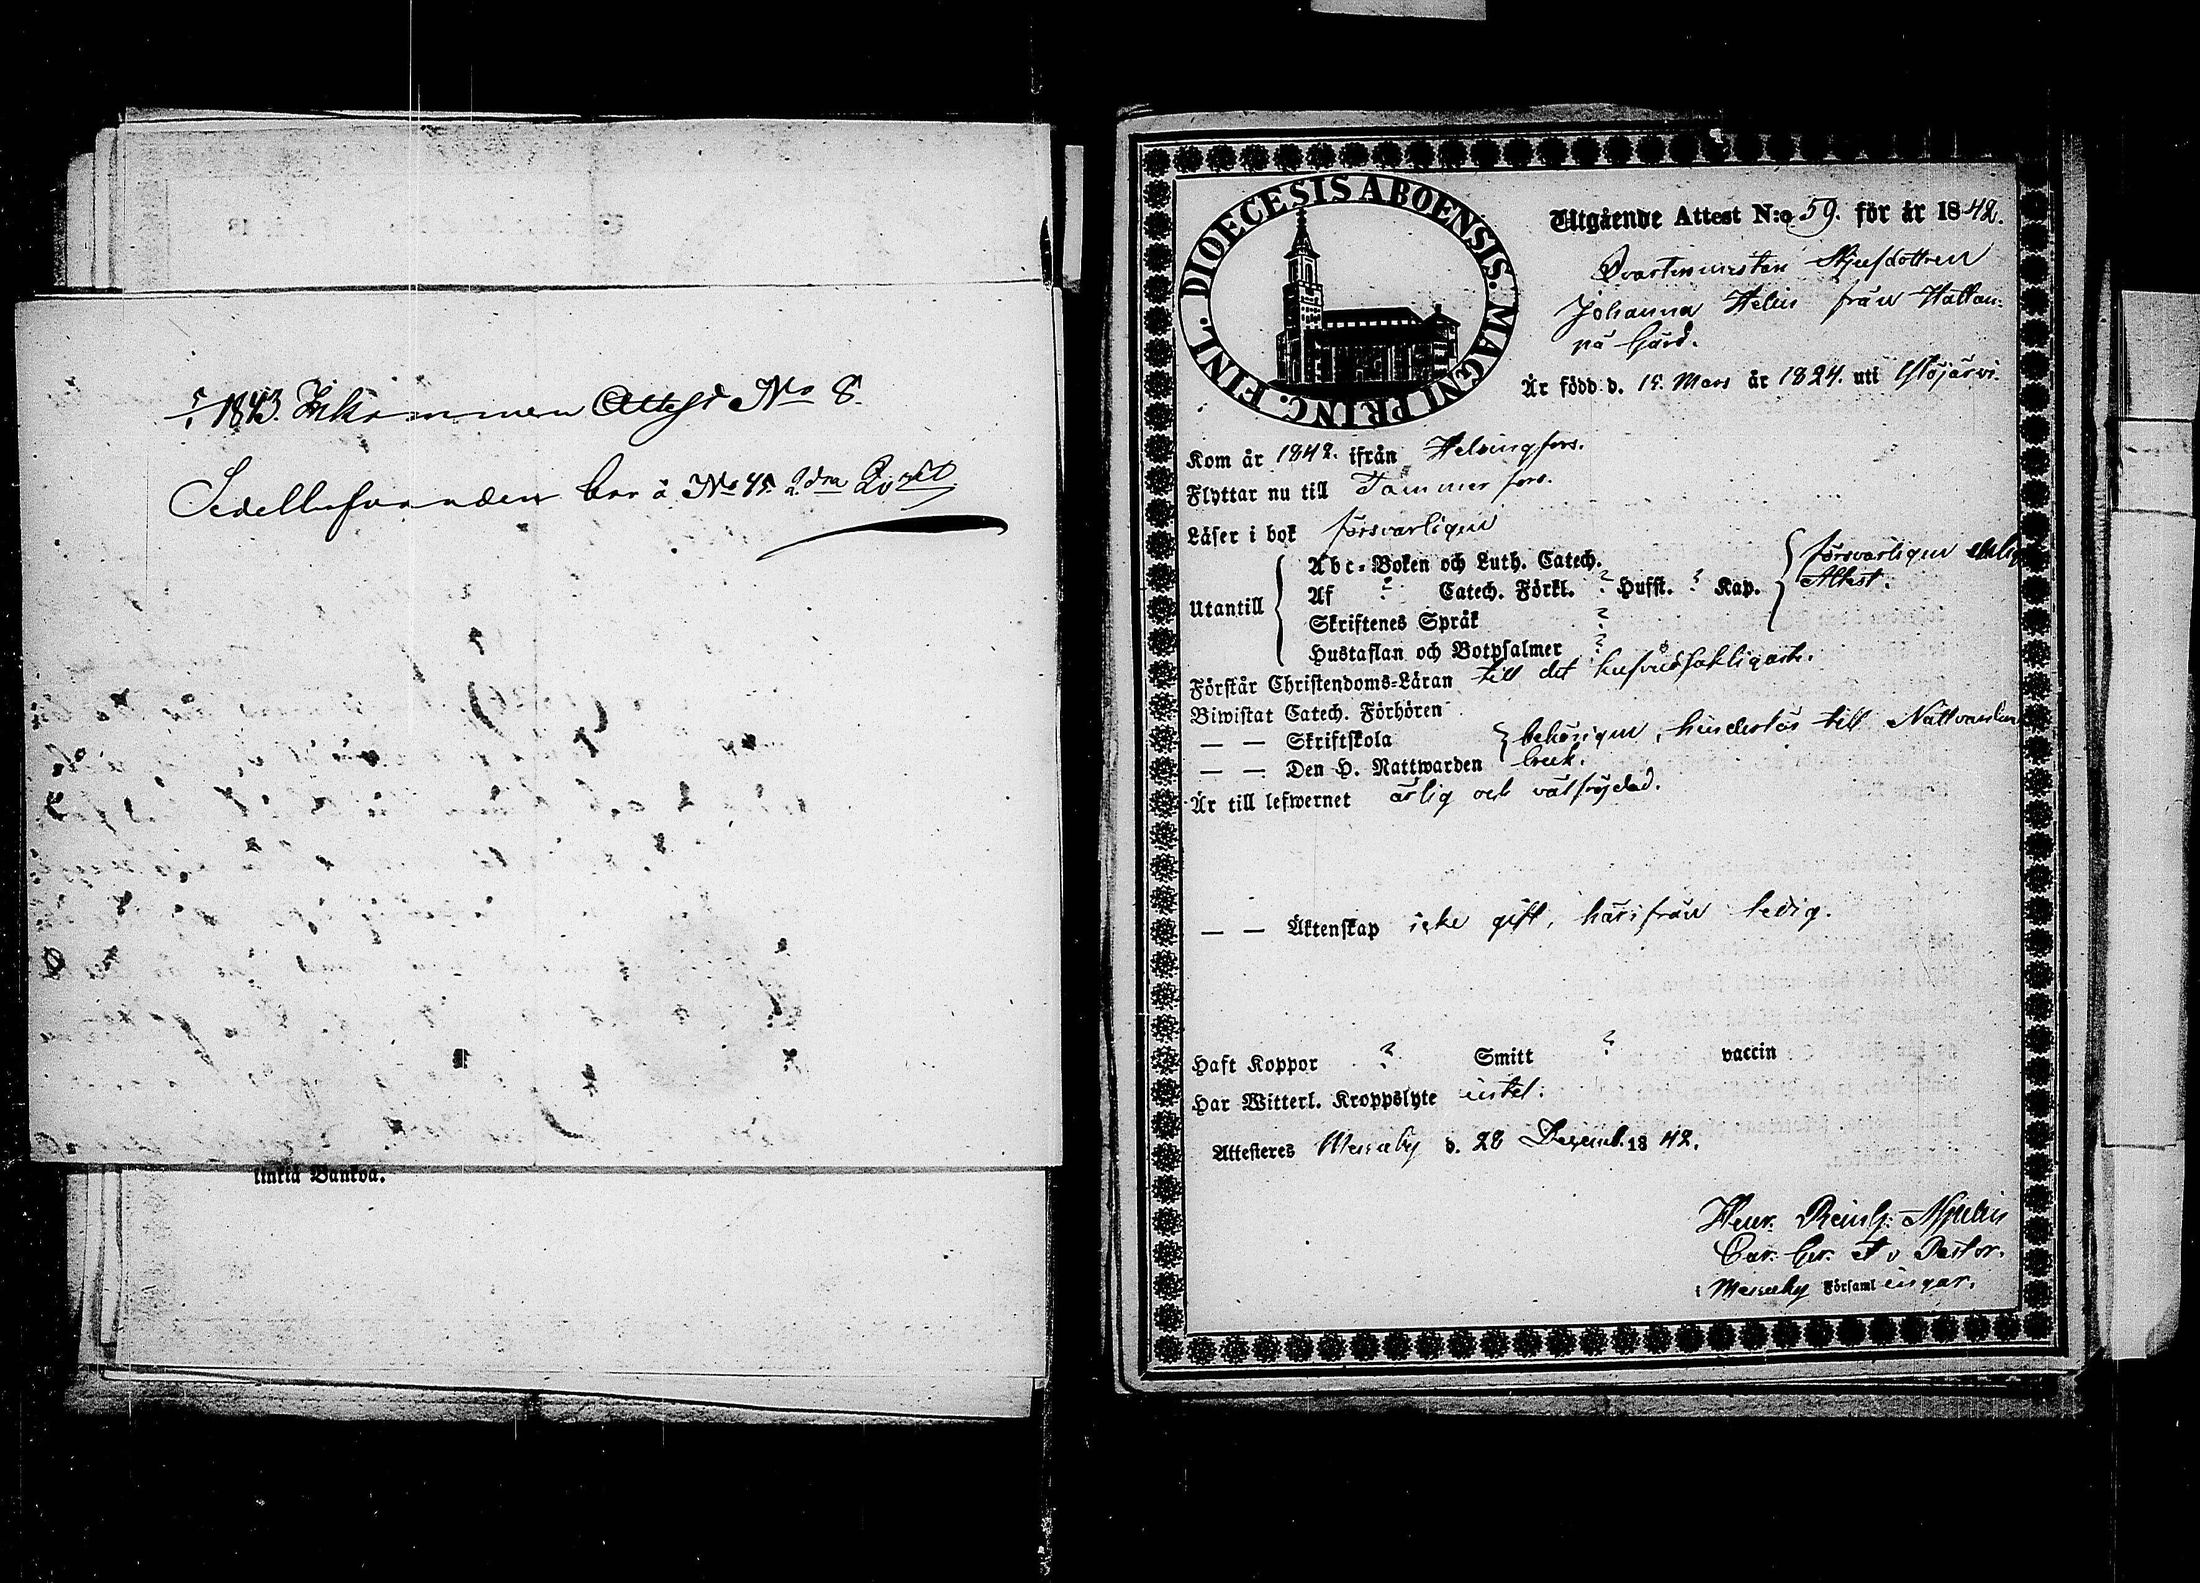 5/1 1843. Inkommen Attest No 8.
Sedelhafvanden bor å No 45. 2dra Qvart
linkia Bankoa.
DIOECESIS ABOENSIS. MAGNI PRINC. FINL.
Utgående Attest N:o 59. för år 1842.
Qvartermestare
Johanna Helin från Hattan-
pä Gård.
Är född d. 15. Mars år 1824. uti Ylöjärvi.
Kom år 1842. ifrån Helsingfors.
Flyttar nu till Tammerfors.
Läser i bok försvarligen
Utantill
Abc-Boken och Luth. Catech.
Af ? Catech. Förkl. ? Hufst. ? Kap.
försvarligen enligt
Attest.
Skriftenes Språk ?
Hustaflan och Botpsalmer ?
Förstår Christendoms-Läran till det hufvudsakligaste.
Biwistat Catech. Förhören
— — Skriftskola behörigen, hinderslös till Nattvardens
— — Den H. Nattwarden bruk.
Är till lefwernet ärlig och välfrejdad.
— — Äktenskap icke gift, härifrån ledig.
Haft Koppor ? Smitt ? vaccin
Har Witterl. Kroppslyte intet.
Attesteres Messuby d. 28 Decemb. 1842.
Henr. Reinh.
v Pastor.
i Messuby Församlingar.